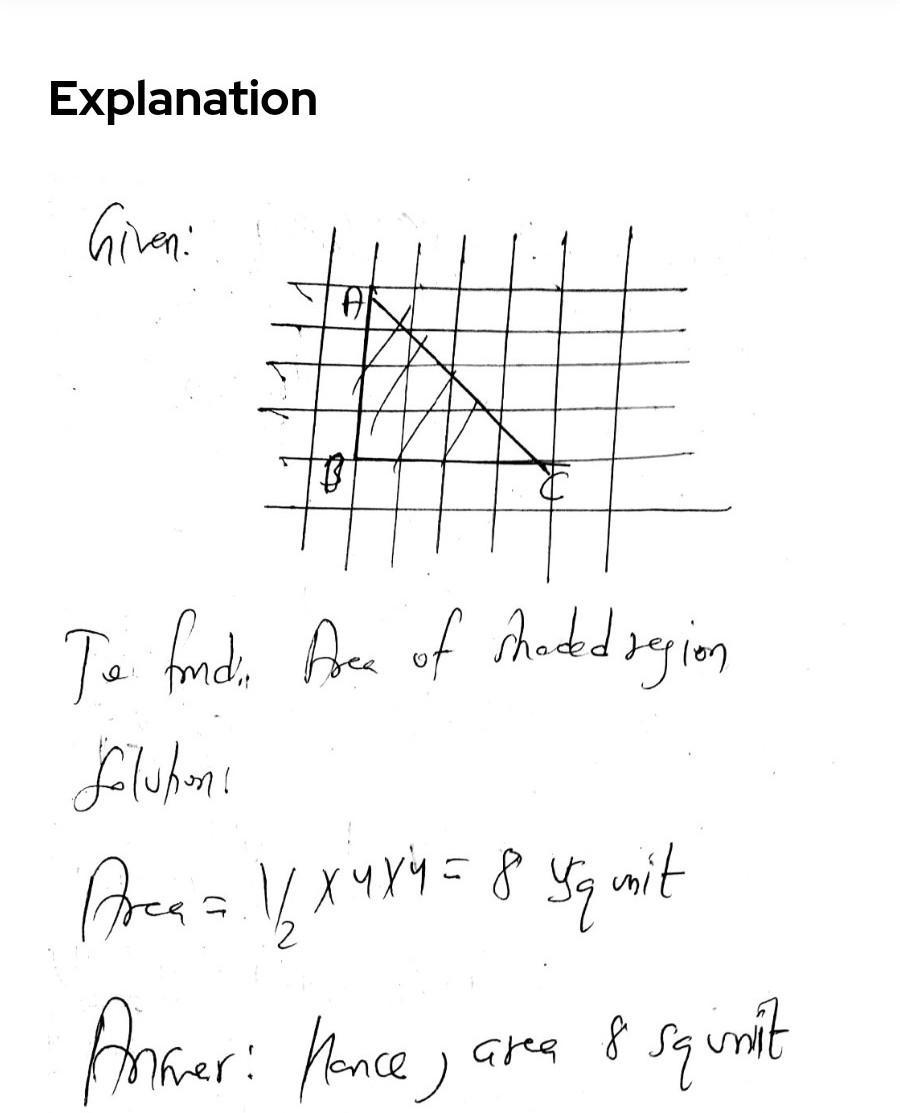 Explanation
Given:
A
B
C
To find: Area of shaded region
Solution:
Area = 1/2 X 4 X 4 = 8 sq unit
Answer: Hence, area 8 sq unit